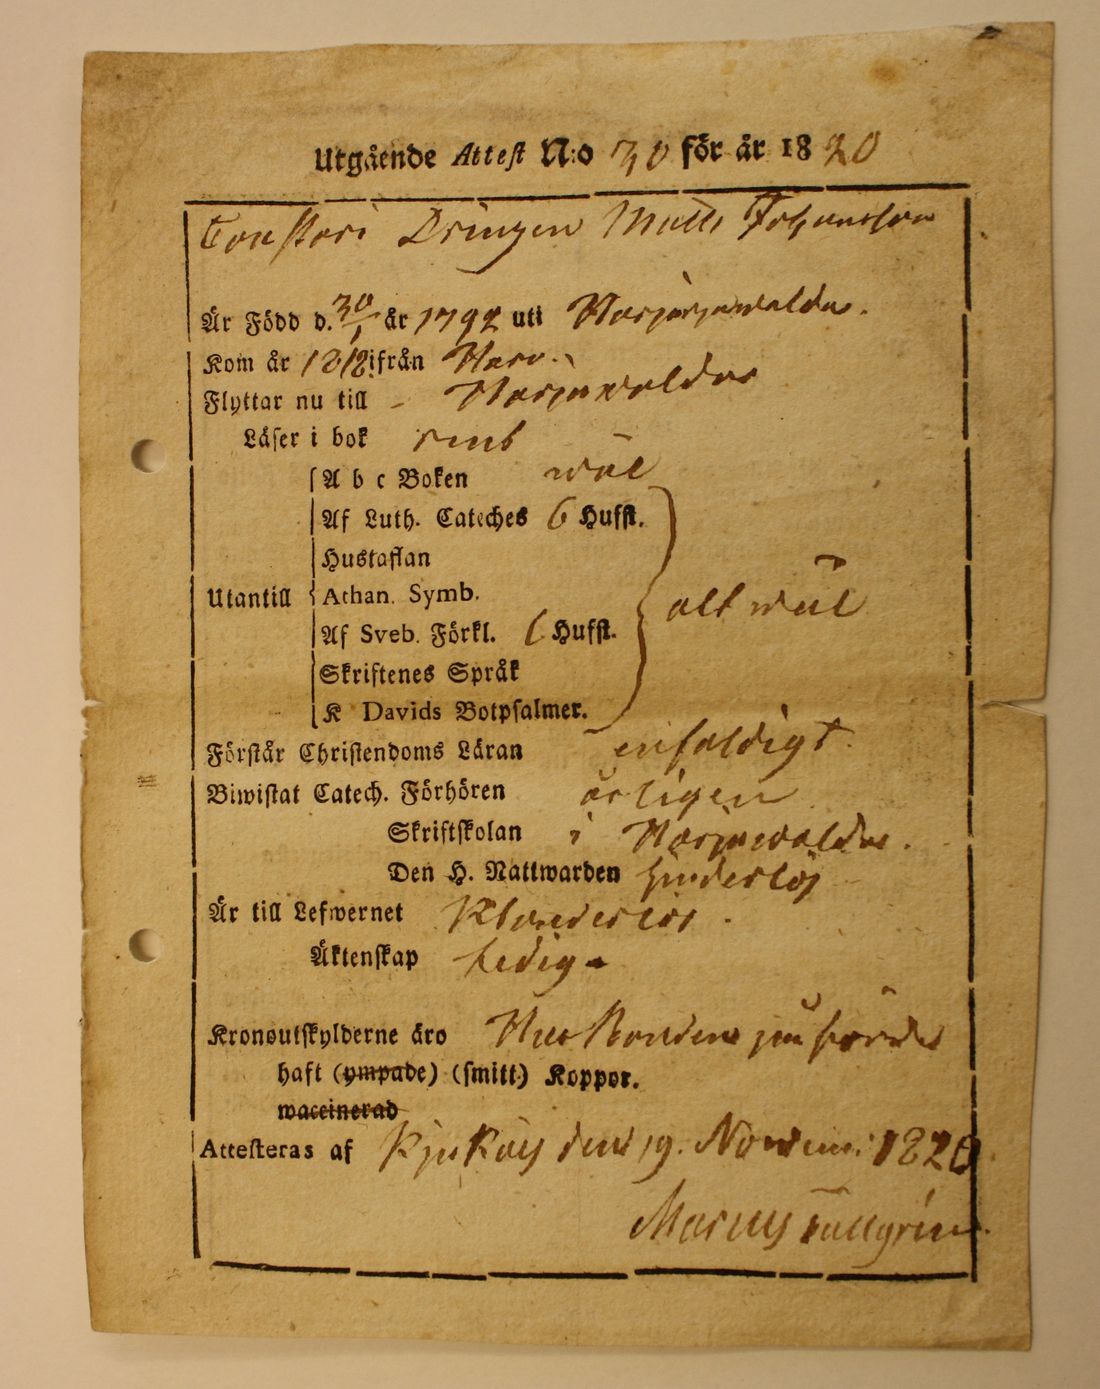 Utgående Attest N:o 30 för år 1820
Drängen Matts Johansson
Är Född d. 30/1 år 1792 uti
Kom år 1818 ifrån
Flyttar nu till -
Läser i bok
A b c Boken wäl
Af Luth. Cateches 6 Hufst.
Hustaflan
Utantill Athan. Symb. alt wäl
Af Sveb. Förkl. 6 Hufst.
Skriftenes Språk
K Davids Botpsalmer.
Förstår Christendoms Läran enfaldigt.
Biwistat Catech. Förhören årligen
Skriftskolan i
Den H. Nattwarden hinderlös
Är till Lefwernet Klanderlös.
Äktenskap Ledig
Kronoutskylderne äro påförde
haft (ympade) (smitt) Koppor.
waccinerad
Attesteras af den 19. Novem: 1820
Marcus Tallgrén.